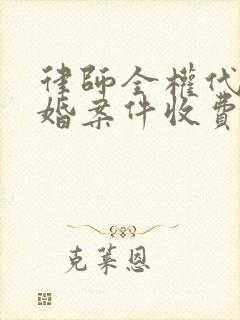 律師全權代
婚案件收費
克莱恩